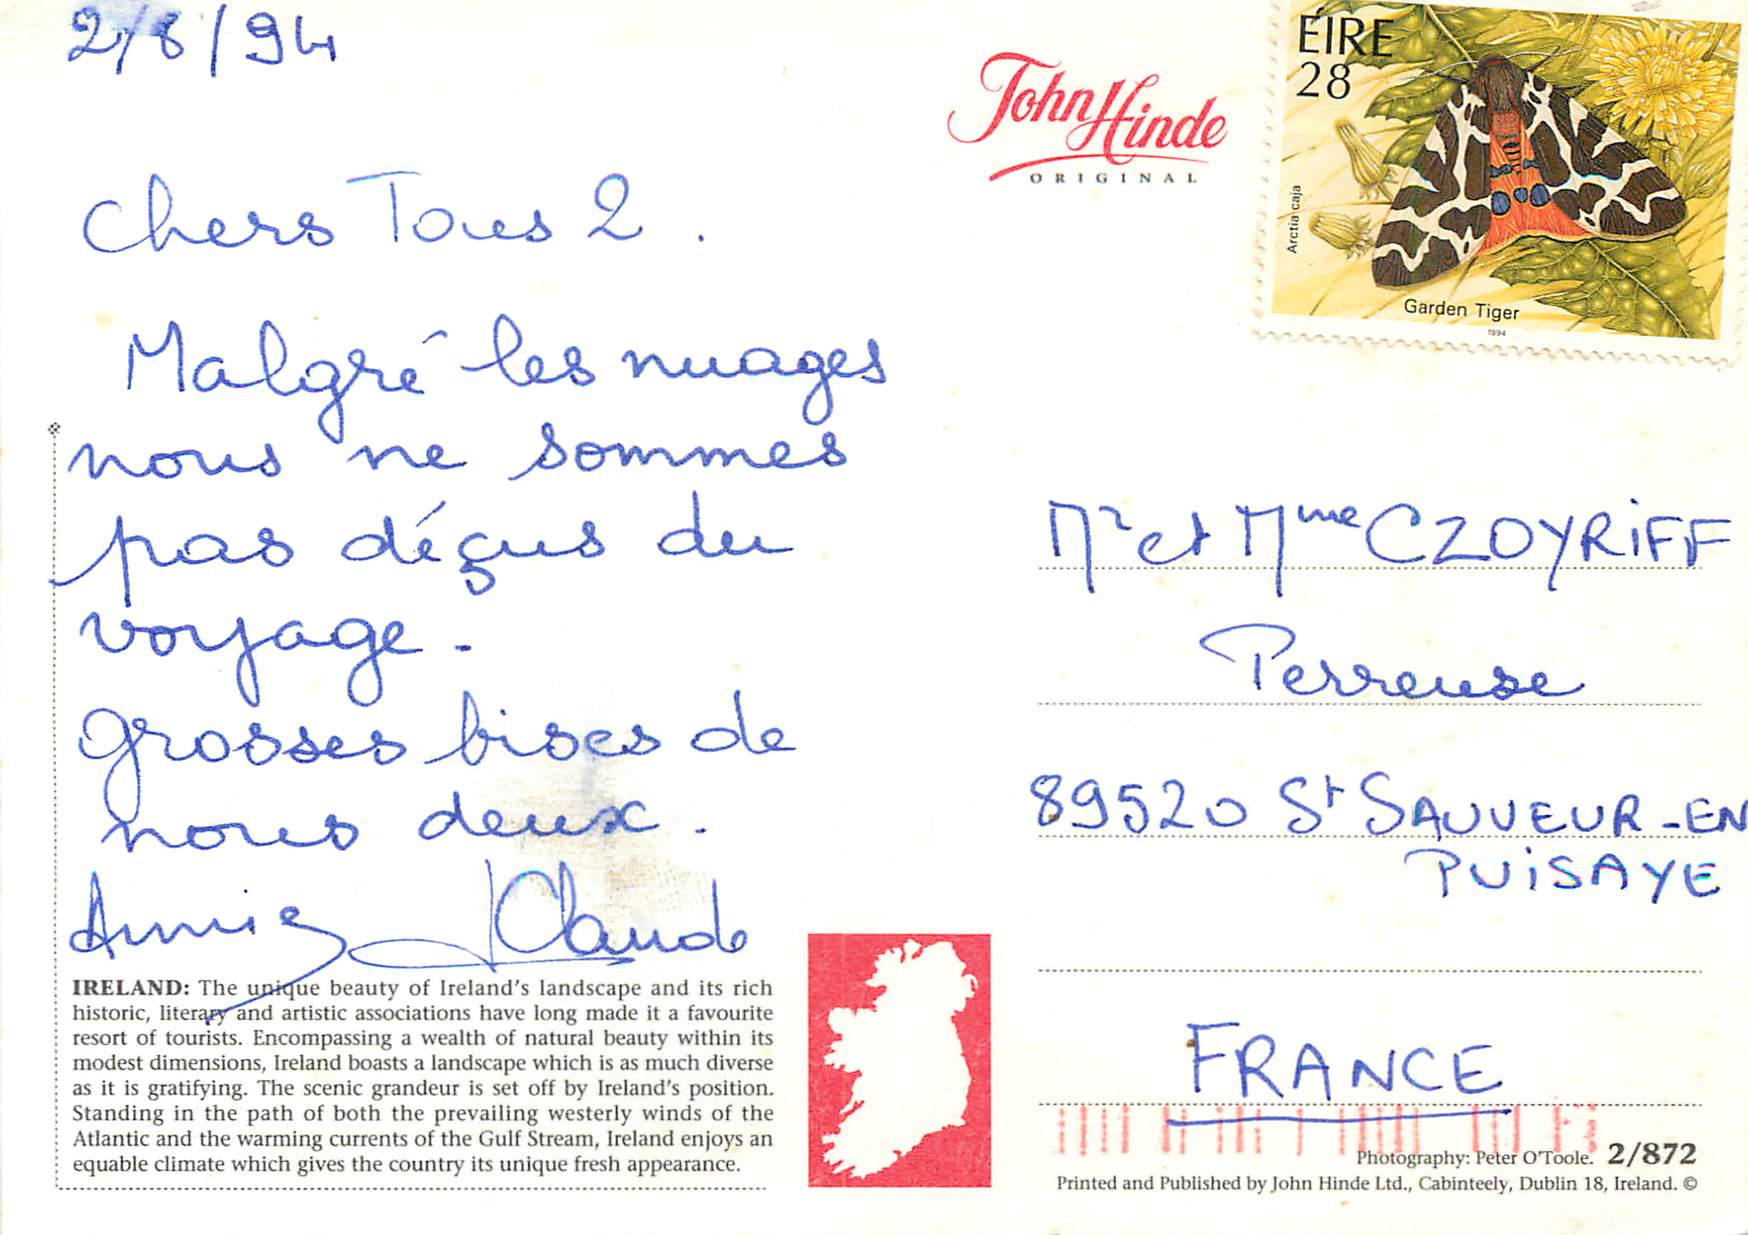 2/8/94
Chers Tous 2.
Malgré les nuages
nous ne sommes
pas déçus du
voyage.
grosses bises de
nous deux.
Annie JClaude
IRELAND: The unique beauty of Ireland's landscape and its rich
historic, literary and artistic associations have long made it a favourite
resort of tourists. Encompassing a wealth of natural beauty within its
modest dimensions, Ireland boasts a landscape which is as much diverse
as it is gratifying. The scenic grandeur is set off by Ireland's position.
Standing in the path of both the prevailing westerly winds of the
Atlantic and the warming currents of the Gulf Stream, Ireland enjoys an
equable climate which gives the country its unique fresh appearance.
John Hinde
ORIGINAL
ÉIRE
28
Arctia caja
Garden Tiger
1994
Mr et Mme CZOYRIFF
Perreuse
89520 St SAUVEUR-EN
PUISAYE
FRANCE
Photography: Peter O'Toole. 2/872
Printed and Published by John Hinde Ltd., Cabinteely, Dublin 18, Ireland. ©